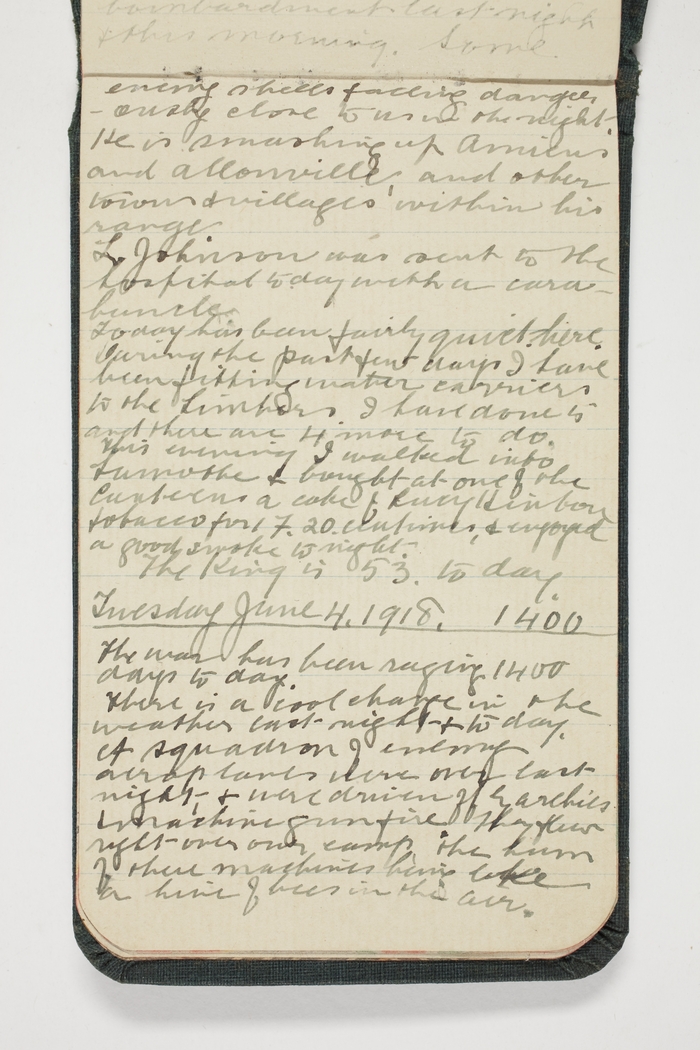 bombardment last night
& this morning. Some
enemy shells falling danger
- ously close to us in the night.
He is smashing up Amiens
and Allonville, and other
towns & villages within his
range
L. Johnson was sent to the
hospital today with a carb-
buncle.
Today has been fairly quiet here.
During the past few days I have
been fitting water carriers
to the Limbers I have done 15
and there are 4 more to do.
This evening I walked into
Lamotte & bought at one of the
Canteens a cake of Lucy Hinton
tobacco for 1 7. 20. centimes, & enjoyed
a good smoke to night.
The King is 53. to day.
Tuesday June 4. 1918. 1400
The war has been raging 1400
days to day.
There is a cool change in the
weather last night & to day.
A squadron of enemy
aeroplanes were over last
night, & were driven off by archies
& machine gun fire. They flew
right over our camp, the hum
of these machines being like
a hive of bees in the air.